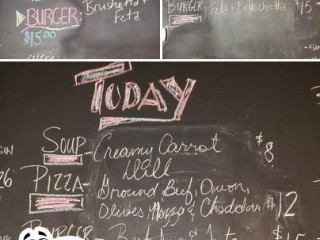 Bruschetta +
BURGER- Feta
$15.00
BURGER- Feta + Bruschetta $15
TODAY
SOUP- Creamy Carrot $8
Dill
PIZZA- Ground Beef, Onion,
Olives, Mozza & Cheddar $12
BURGER-